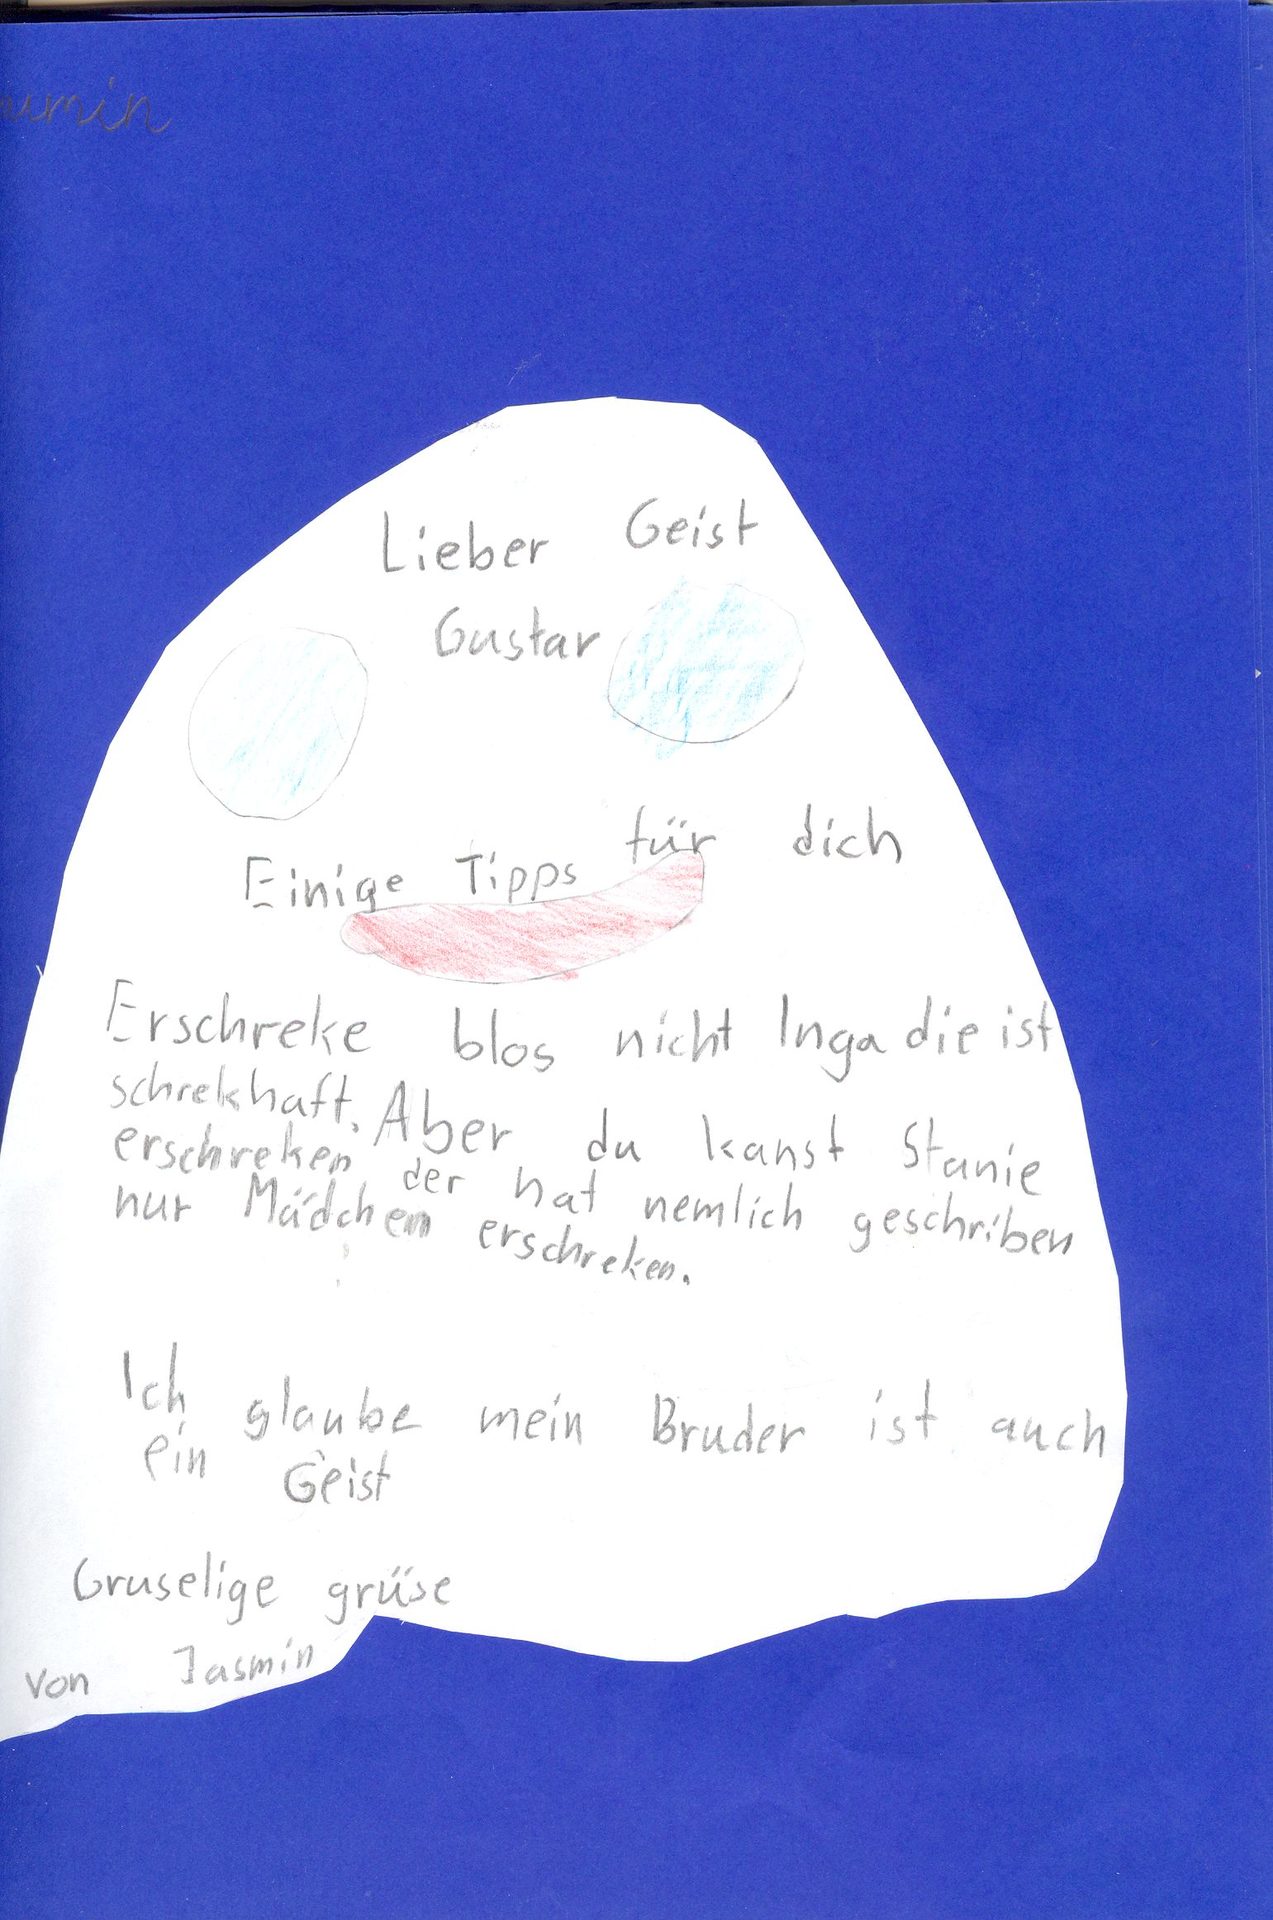 Lieber Geist
Gustav
Einige Tipps für dich
Erschreke blos nicht Inga die ist
schrekhaft. Aber du kanst Stanie
erschreken der hat nemlich geschriben
nur Mädchen erschreken.
Ich glaube mein Bruder ist auch
ein Geist
Gruselige grüse
von Jasmin